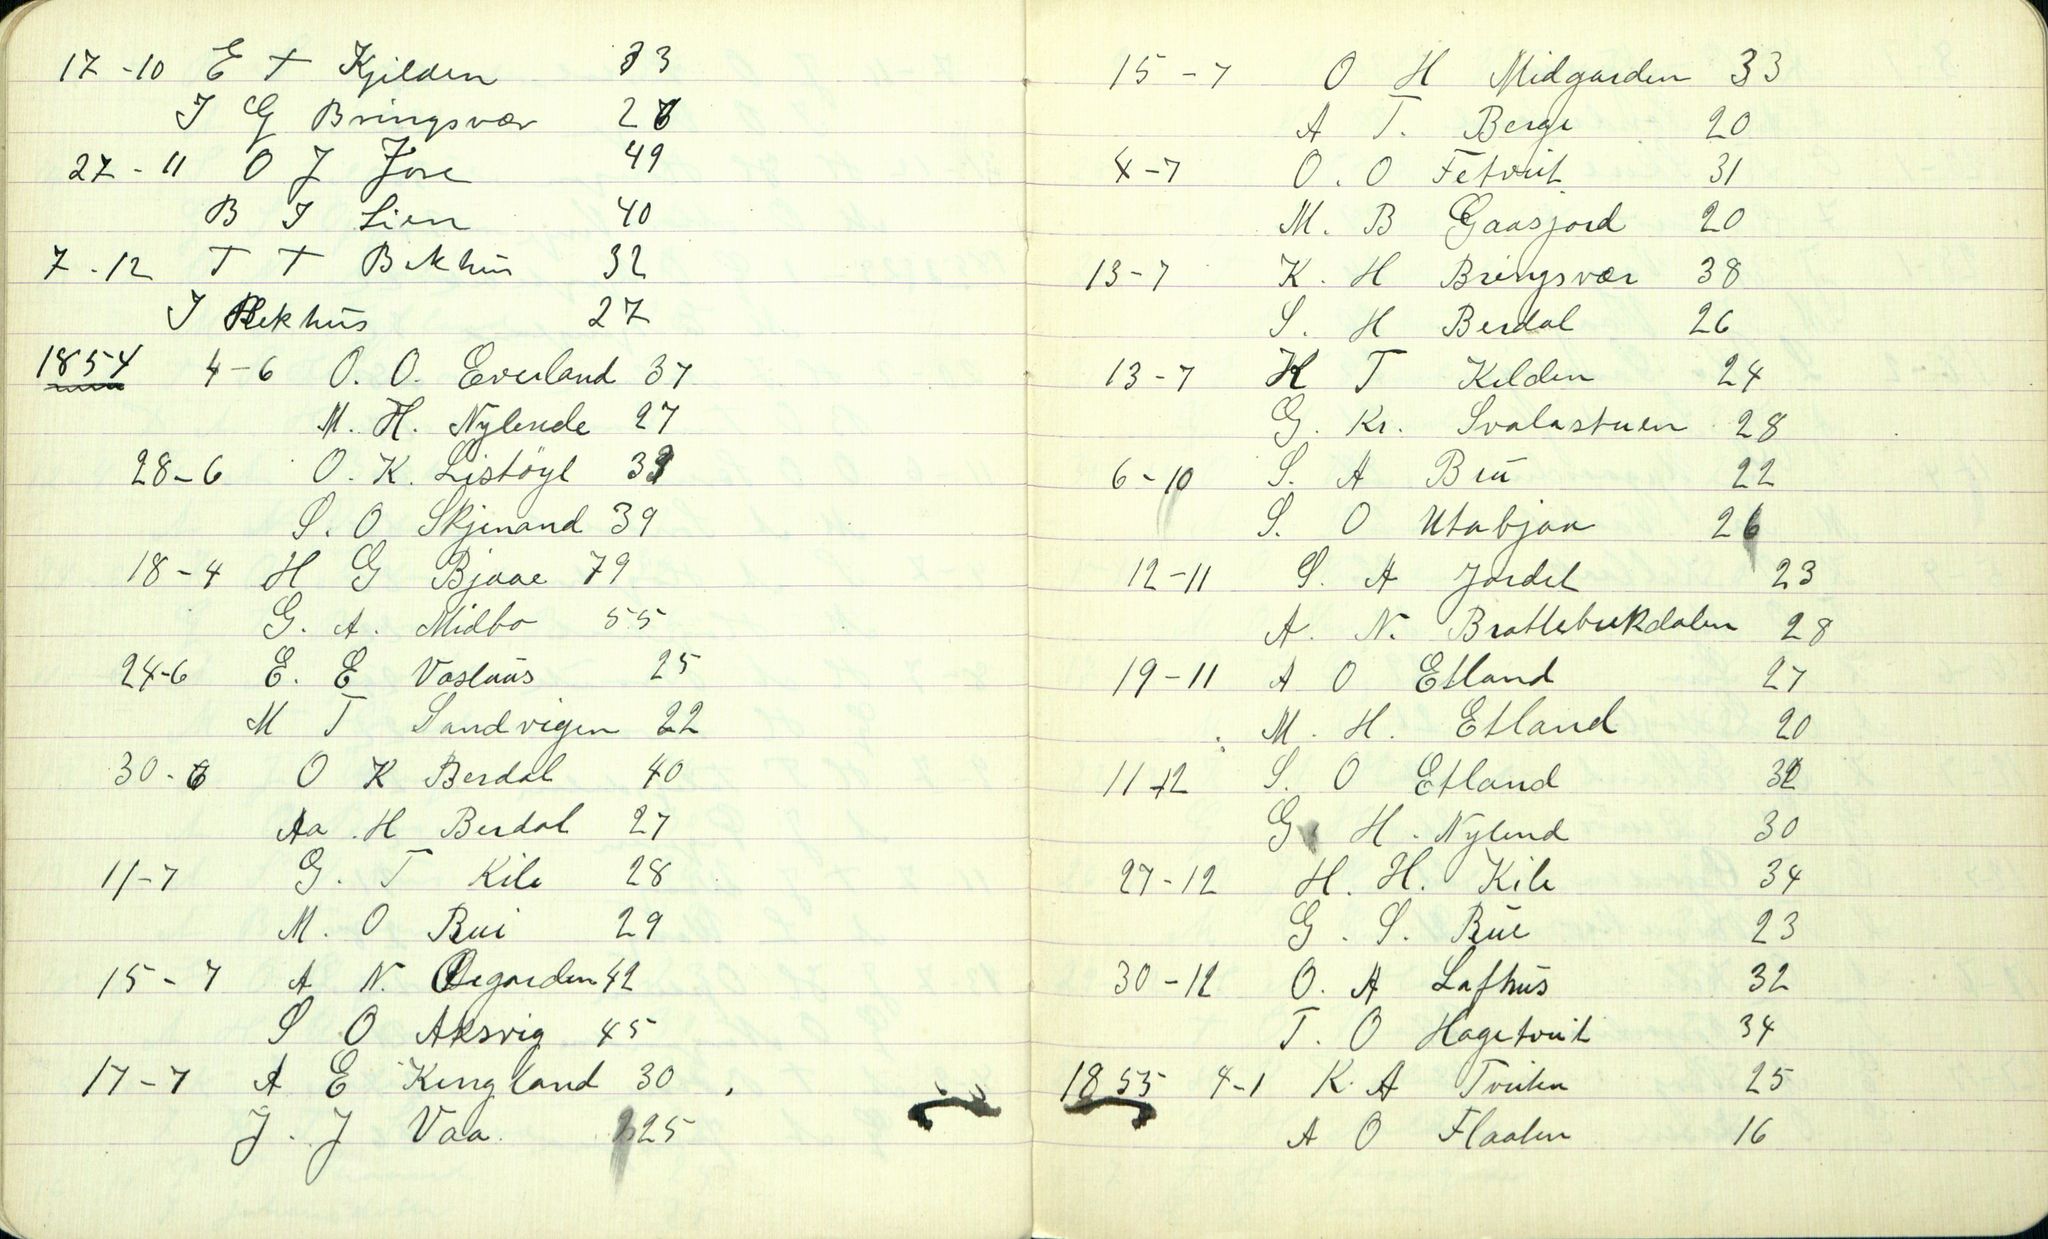 17 - 10 E T Kjilden 33
J G Bringsvær 26
27 - 11 O J Jore 49
B J Lien 40
7 - 12 T T Bekhus 32
J Bekhus 27
1854 4 - 6 O. O. Everland 37
M. H. Nylende 27
28 - 6 O. K. Listöyl 33
S. O Skjenand 39
18 - 4 H G Bjaae 79
G. A. Midbo 55
24-6 E. E Vaslaus 25
M T Sandvigen 22
30 - 6 O K Berdal 40
Aa H Berdal 27
11-7 G. T Kile 28
M. O Bui 29
15 - 7 A N. Øigarden 42
S O Aksvig 45
17 - 7 A E Kingland 30
J. J Vaa 25
15 - 7 O H Midgarden 33
A T. Berge 20
4 - 7 O. O Fetveit 31
M. B Gaasjord 20
13 - 7 K. H Bringsvær 38
S. H Berdal 26
13 - 7 K T Kilden 24
G. Kr. Svalastuen 28
6 - 10 S. A Bru 22
S. O Utabjaa 26
12 - 11 S. A Jordet 23
A. N. Brattebukdalen 28
19 - 11 A O Etland 27
M. H. Etland 20
11 - 12 S. O Etland 32
G H. Nylend 30
27 - 12 H. H. Kile 34
G. S. Bue 23
30 - 12 O. A Lofthus 32
T. O Hagetveit 34
1855 4-1 K. A Tveiten 25
A O Flaaten 16